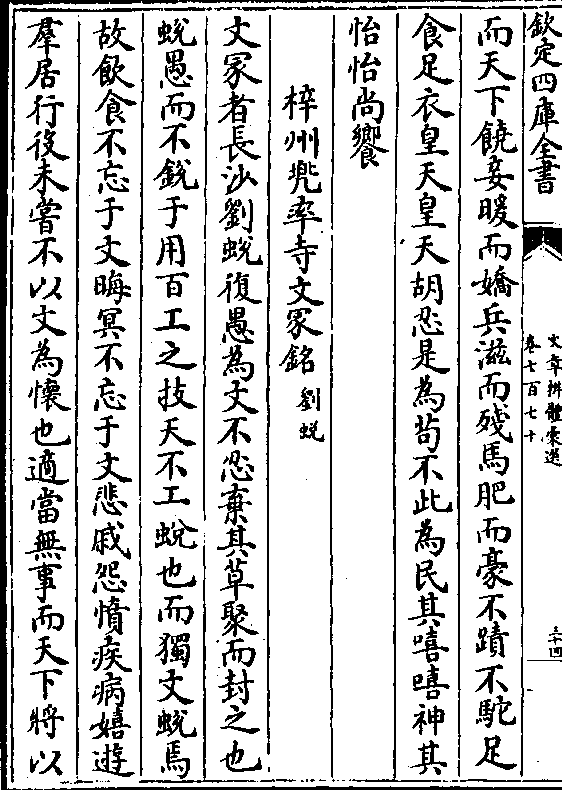 欽定四庫全書
文章辨體彙選
卷七百七十
三十四
而天下饒妾暖而嬌兵滋而殘馬肥而豪不蹟不駝足
食足衣皇天皇天胡忍是為茍不此為民其嘻嘻神其
怡怡尚饗
梓州兠率寺文冢銘 劉蛻
文冢者長沙劉蛻復愚為文不忍棄其草聚而封之也
蛻愚而不銳于用百工之技天不工蛻也而獨文蛻焉
故飲食不忘于文晦冥不忘于文悲戚怨憤疾病嬉遊
羣居行役未嘗不以文為懷也適當無事而天下將以